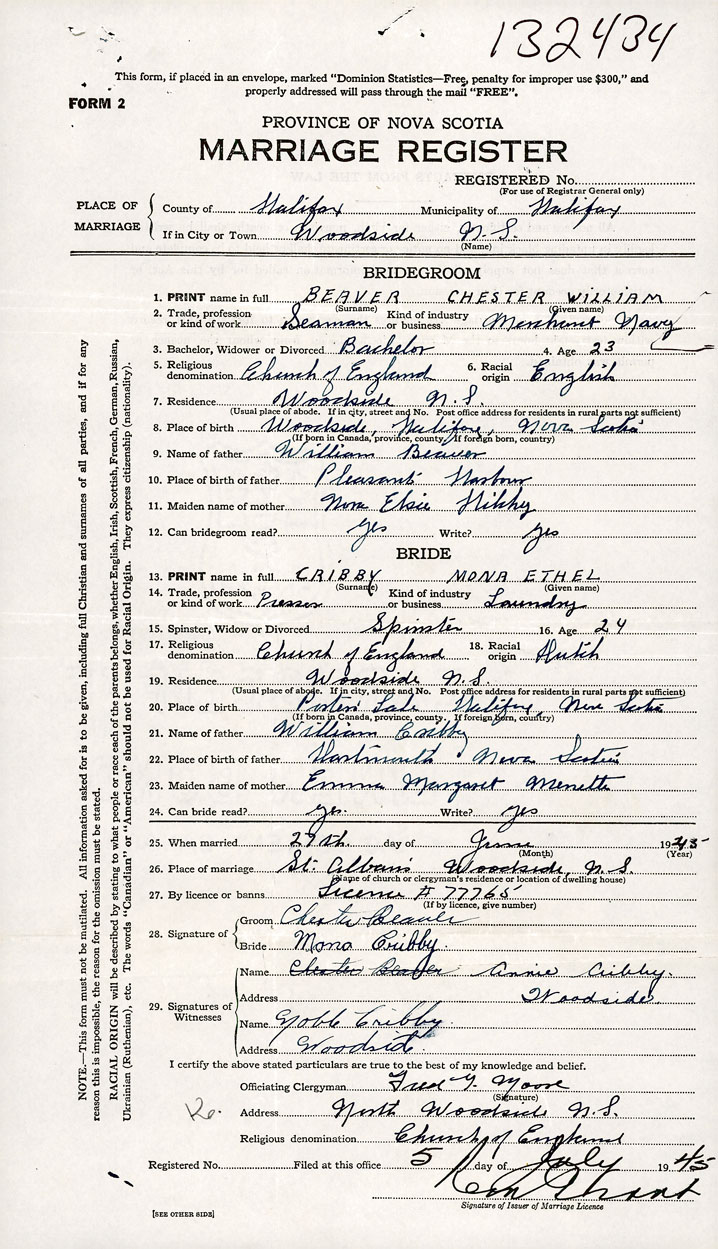 132434
This form, if placed in an envelope, marked "Dominion Statistics—Free, penalty for improper use $300," and
properly addressed will pass through the mail "FREE".
FORM 2
PROVINCE OF NOVA SCOTIA
MARRIAGE REGISTER
REGISTERED No.
(For use of Registrar General only)
PLACE OF MARRIAGE
County of Halifax Municipality of Halifax
If in City or Town Woodside N.S.
(Name)
BRIDEGROOM
1. PRINT name in full BEAVER CHESTER WILLIAM
(Surname) (Given name)
2. Trade, profession or kind of work Seaman Kind of industry or business Merchant Navy
3. Bachelor, Widower or Divorced Bachelor 4. Age 23
5. Religious denomination Church of England 6. Racial origin English
7. Residence Woodside N.S.
(Usual place of abode. If in city, street and No. Post office address for residents in rural parts not sufficient)
8. Place of birth Woodside, Halifax, Nova Scotia
(If born in Canada, province, county. If foreign born, country)
9. Name of father William Beaver
10. Place of birth of father Pleasant Harbour
11. Maiden name of mother Nora Elsie
12. Can bridegroom read? yes Write? yes
BRIDE
13. PRINT name in full CRIBBY MONA ETHEL
(Surname) (Given name)
14. Trade, profession or kind of work Presser Kind of industry or business Laundry
15. Spinster, Widow or Divorced Spinster 16. Age 24
17. Religious denomination Church of England 18. Racial origin Dutch
19. Residence Woodside N.S.
(Usual place of abode. If in city, street and No. Post office address for residents in rural parts not sufficient)
20. Place of birth Porters Lake Halifax, Nova Scotia
(If born in Canada, province, county. If foreign born, country)
21. Name of father William Cribby
22. Place of birth of father Dartmouth Nova Scotia
23. Maiden name of mother Emma Margaret
24. Can bride read? yes. Write? yes
25. When married 29th. day of June 1945
(Month) (Year)
26. Place of marriage St. Albans Woodside, N.S.
(Name of church or clergyman's residence or location of dwelling house)
27. By licence or banns Licence # 77765
(If by licence, give number)
28. Signature of
Groom Chester Beaver
Bride Mona Cribby.
29. Signatures of Witnesses
Name Chester Beaver Annie Cribby.
Address Woodside
Name Cribby.
Address Woodside.
I certify the above stated particulars are true to the best of my knowledge and belief.
Officiating Clergyman Fred Y. Moore
(Signature)
Address North Woodside N.S.
Religious denomination Church of England
Registered No. Filed at this office 5 day of July 1945
Signature of Issuer of Marriage Licence
[SEE OTHER SIDE]
NOTE.—This form must not be mutilated. All information asked for is to be given, including full Christian and surnames of all parties, and if for any
reason this is impossible, the reason for the omission must be stated.
RACIAL ORIGIN will be described by stating to what people or race each of the parents belongs, whether English, Irish, Scottish, French, German, Russian,
Ukrainian (Ruthenian), etc. The words "Canadian" or "American" should not be used for Racial Origin. They express citizenship (nationality).